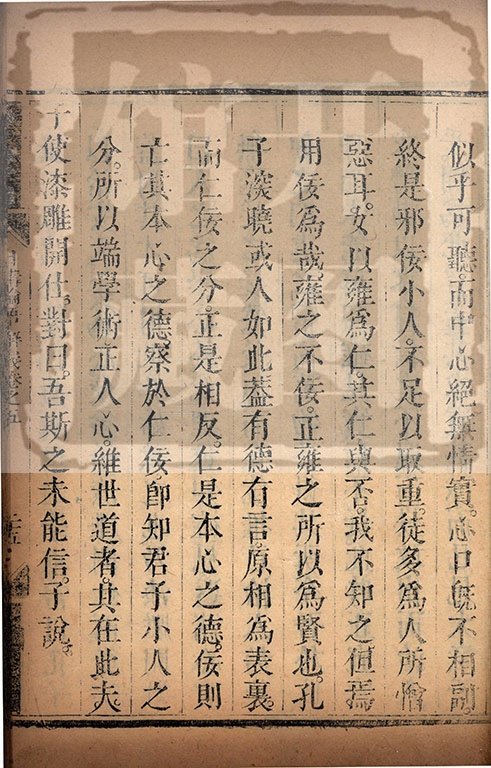 似乎可聽。而中心絕無情實。心口既不相副。
終是邪佞小人。不足以取重。徒多為人所憎
惡耳。女以雍為仁。其仁與否。我不知之但焉
用佞為哉。雍之不佞。正雍之所以為賢也。孔
子深曉或人如此蓋有德有言。原相為表裏。
而仁佞之分。正是相反。仁是本心之德。佞則
亡其本心之德。察於仁佞。卽知君子小人之
分。所以端學術正人心。維世道者。其在此夫。
子使漆雕開仕。對曰。吾斯之未能信。子說。